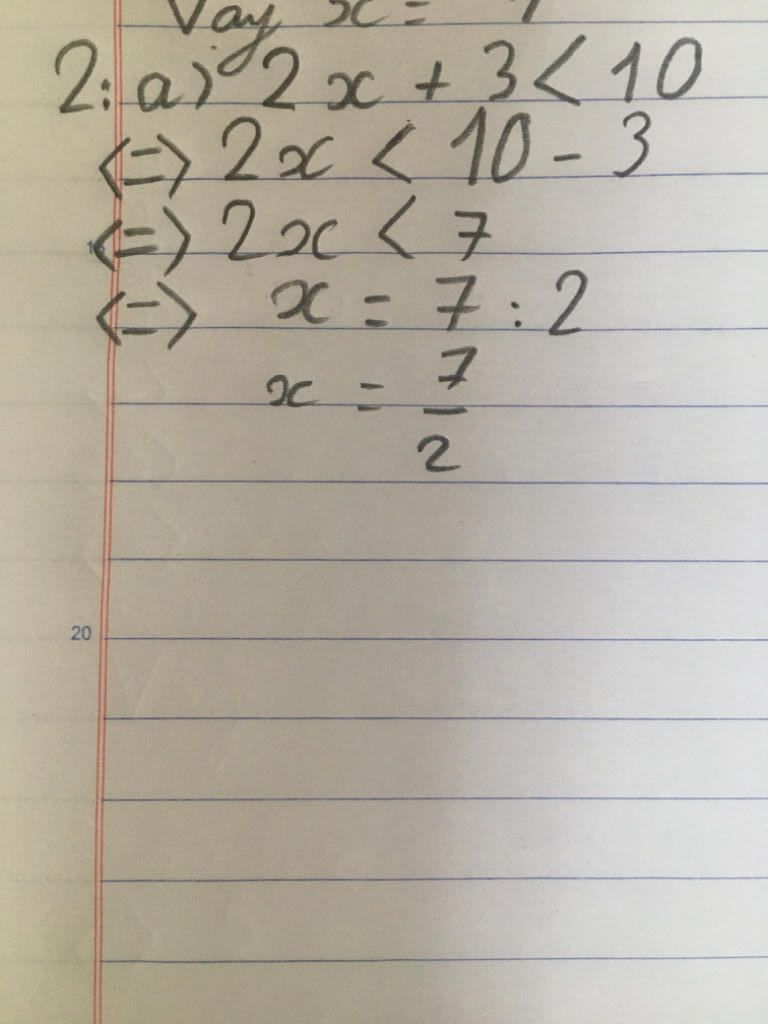 Vay x =
2: a) 2x + 3 < 10
<=> 2x < 10 - 3
<=> 2x < 7
<=> x = 7 : 2
x = 7/2
20